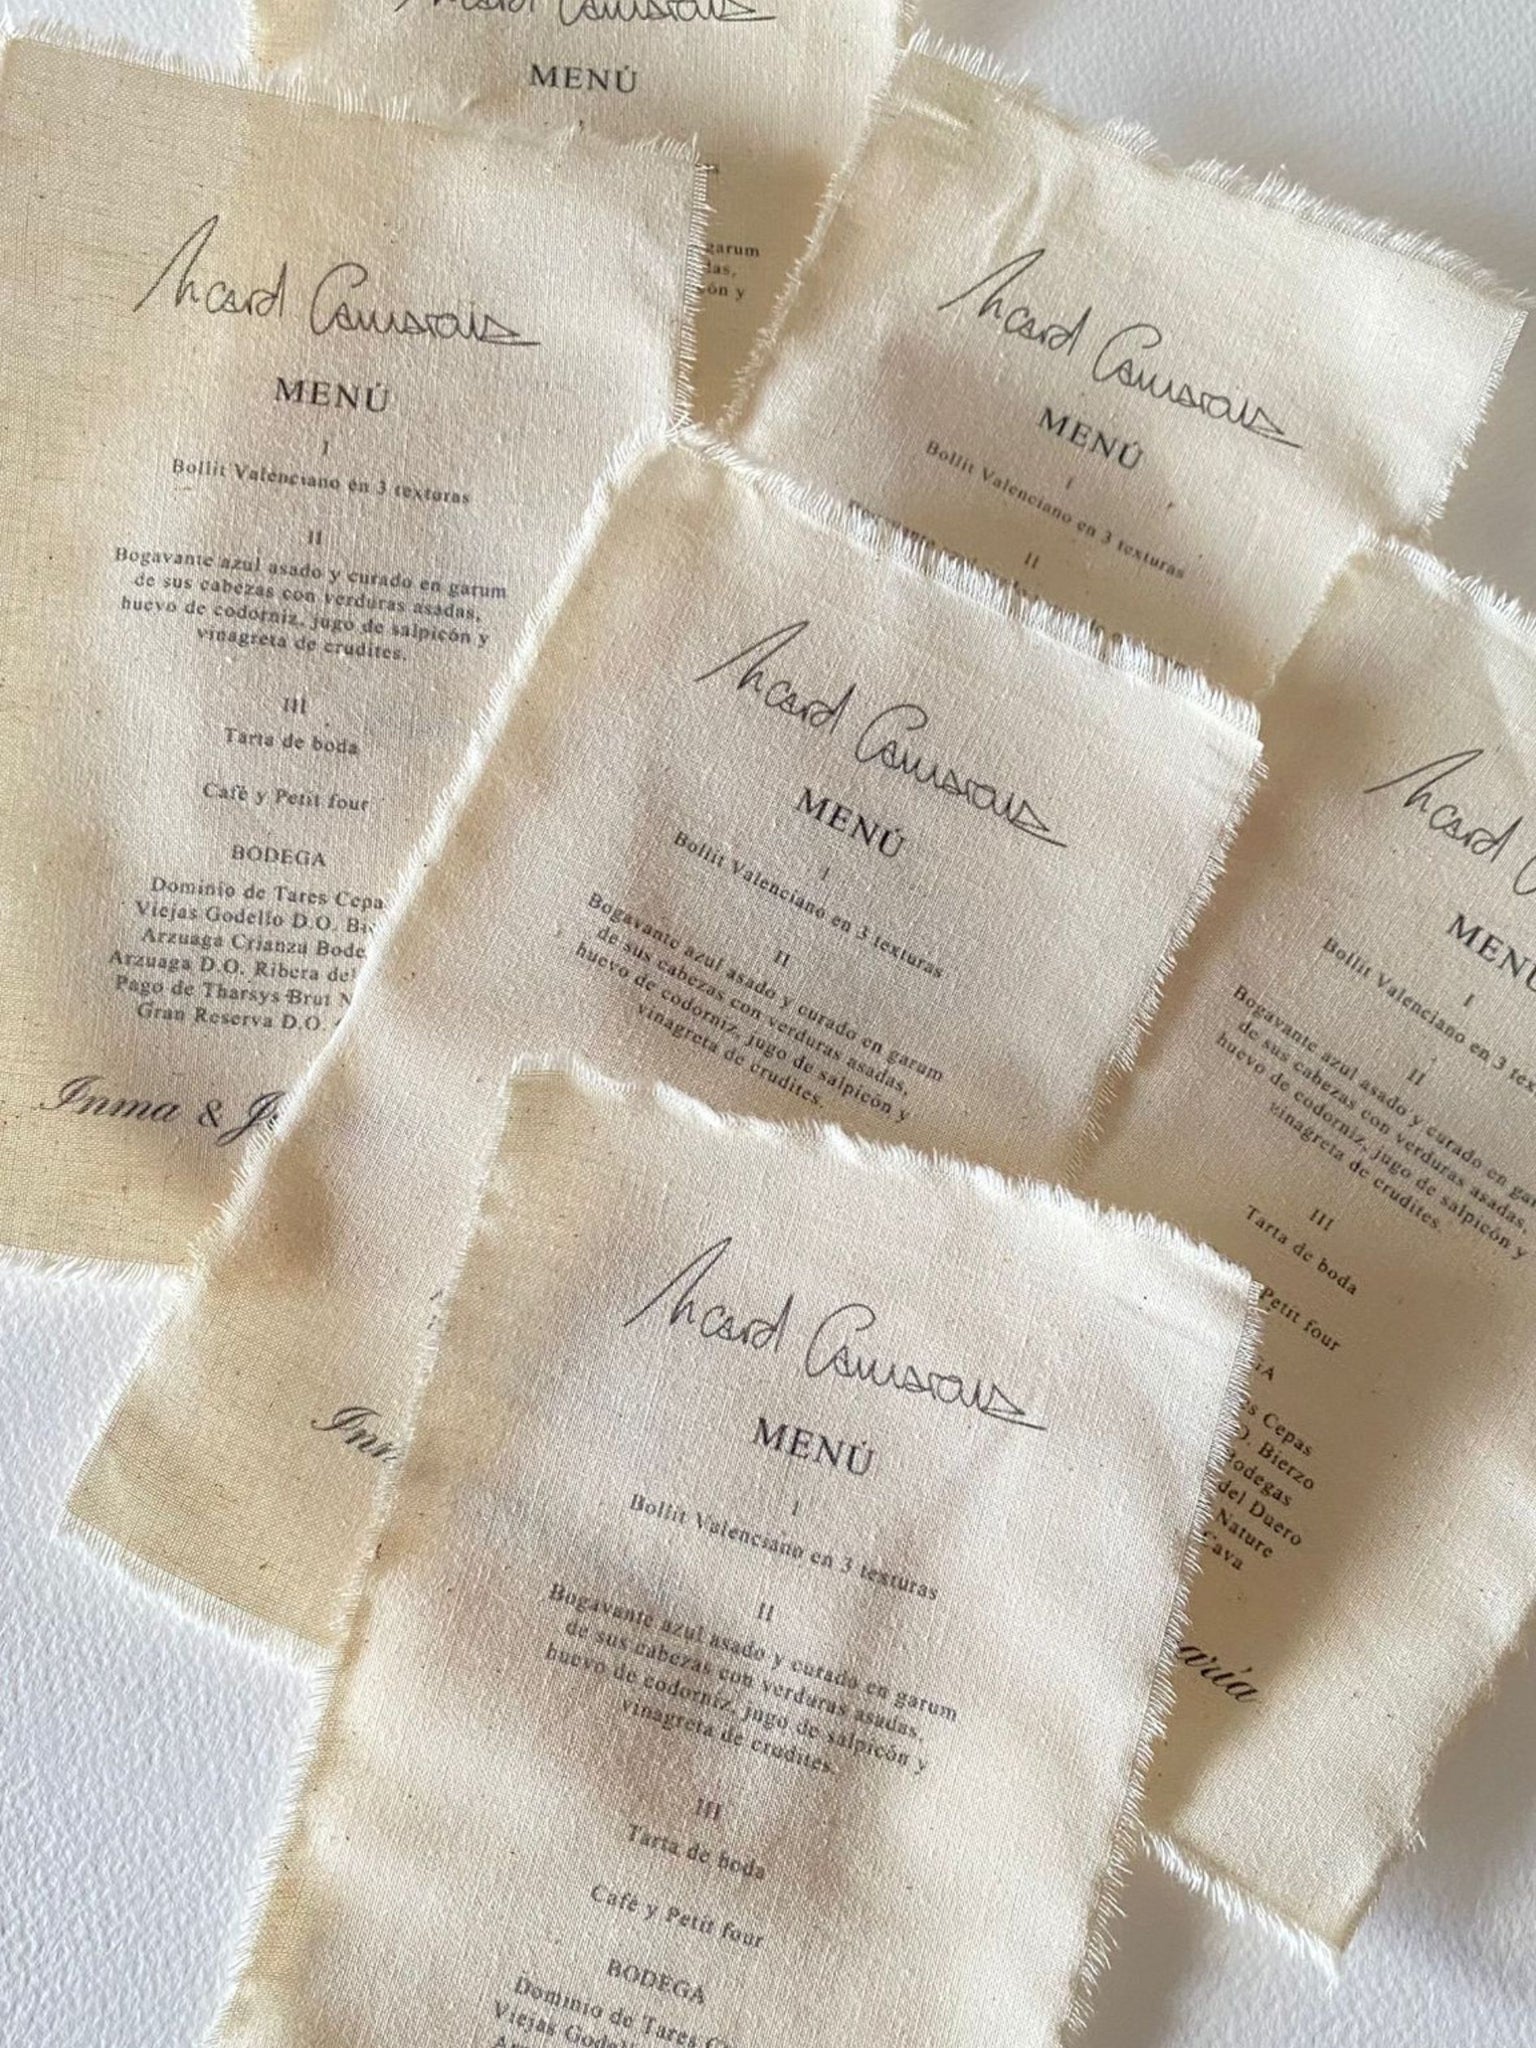 Ricard Camarena
MENÚ
garum
das,
cón y
Ricard Camarena
MENÚ
I
Bollit Valenciano en 3 texturas
II
Bogavante azul asado y curado en garum
de sus cabezas con verduras asadas,
huevo de codorniz, jugo de salpicón y
vinagreta de crudites.
III
Tarta de boda
Café y Petit four
BODEGA
Dominio de Tares Cepa
Viejas Godello D.O. Bi
Arzuaga Crianza Bode
Arzuaga D.O. Ribera del
Pago de Tharsys Brut N
Gran Reserva D.O.
Inma & J
Ricard Camarena
MENÚ
I
Bollit Valenciano en 3 texturas
II
Ricard Camarena
MENÚ
I
Bollit Valenciano en 3 texturas
II
Bogavante azul asado y curado en garum
de sus cabezas con verduras asadas,
huevo de codorniz, jugo de salpicón y
vinagreta de crudites.
Inm
Ricard
MENÚ
I
Bollit Valenciano en 3 tex
II
Bogavante azul asado y curado en gar
de sus cabezas con verduras asadas,
huevo de codorniz, jugo de salpicón y
vinagreta de crudites.
III
Tarta de boda
Petit four
GA
os Cepas
O. Bierzo
Bodegas
del Duero
Nature
Cava
aría
Ricard Camarena
MENÚ
I
Bollit Valenciano en 3 texturas
II
Bogavante azul asado y curado en garum
de sus cabezas con verduras asadas,
huevo de codorniz, jugo de salpicón y
vinagreta de crudites.
III
Tarta de boda
Café y Petit four
BODEGA
Dominio de Tares C
Viejas God